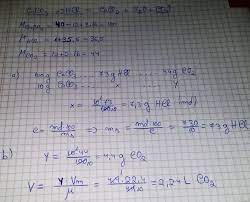 CaCO₃ + 2HCl = CaCl₂ + H₂O + CO₂
M CaCO₃ = 40+12+3·16 = 100
M HCl = 1+35,5 = 36,5
M CO₂ = 12+2·16 = 44
a) 100g CaCO₃ ... 73g HCl ... 44g CO₂
10g CaCO₃ ... x ... y
x = 10·73/100 = 7,3g HCl (md)
c = md·100/ms ⇒ ms = md·100/c = 730/10 = 73g HCl
b) y = 10·44/100 = 4,4g CO₂
V = y·Vm/μ = 4,4·22,4/44 = 2,24 L CO₂